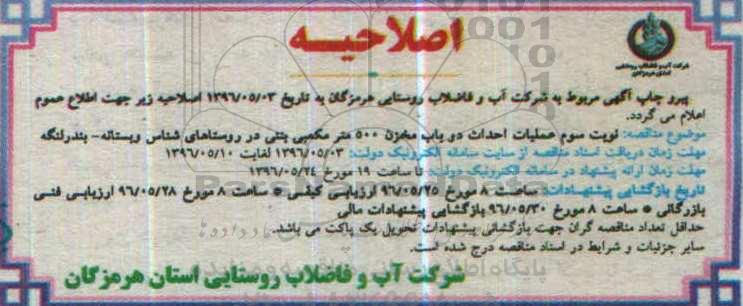 اصلاحیه
شرکت آب و فاضلاب روستایی
استان هرمزگان
پیرو چاپ آگهی مربوط به شرکت آب و فاضلاب روستایی هرمزگان به تاریخ ۱۳۹۶/۰۵/۰۳ اصلاحیه زیر جهت اطلاع عموم
اعلام می گردد.
موضوع مناقصه: نوبت سوم عملیات احداث دو باب مخزن ۵۰۰ متر مکعبی بتنی در روستاهای شناس وبستانه- بندرلنگه
مهلت زمان دریافت اسناد مناقصه از سایت سامانه الکترونیک دولت: ۱۳۹۶/۰۵/۰۳ لغایت ۱۳۹۶/۰۵/۱۰
مهلت زمان ارائه پیشنهاد در سامانه الکترونیک دولت: تا ساعت ۱۹ مورخ ۱۳۹۶/۰۵/۲۴
تاریخ بازگشایی پیشنهادات: ساعت ۸ مورخ ۹۶/۰۵/۲۵ ارزیابی کیفی * ساعت ۸ مورخ ۹۶/۰۵/۲۸ ارزیابی فنی
بازرگانی * ساعت ۸ مورخ ۹۶/۰۵/۳۰ بازگشایی پیشنهادات مالی
حداقل تعداد مناقصه گران جهت بازگشائی پیشنهادات تحویل یک پاکت می باشد.
سایر جزئیات و شرایط در اسناد مناقصه درج شده است.
شرکت آب و فاضلاب روستایی استان هرمزگان